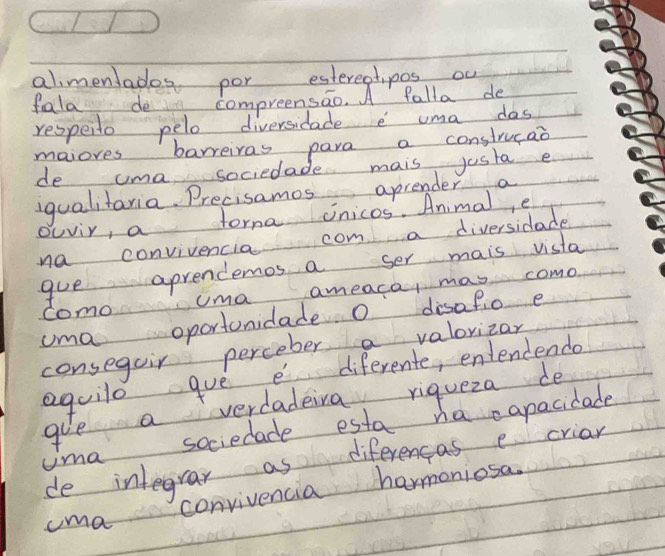 alimentados por estereotipos ou
fala de compreensão. A falta de
respeito pelo diversidade é uma das
maiores barreiras para a construcaõ
de uma sociedade mais justa e
igualitaria. Precisamos aprender a
ouvir, a torna únicos. Animal, e
na convivencia com a diversidade
que aprendemos a ser mais vista
como uma ameaça, mas como
uma oportunidade. O disafio e
conseguir perceber a valorizar
aquilo que é diferente, entendendo
que a verdadeira riqueza de
uma sociedade esta na capacidade
de integrar as diferenças e criar
uma convivencia harmoniosa.